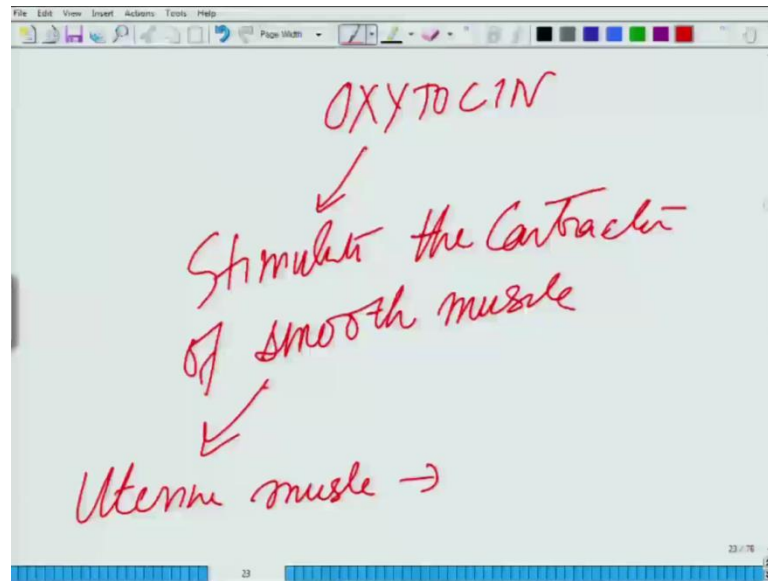 File Edit View Insert Actions Tools Help
Page Width
OXYTOCIN
Stimulate the Contraction
of smooth muscle
Uterine musle →
23 / 76
23